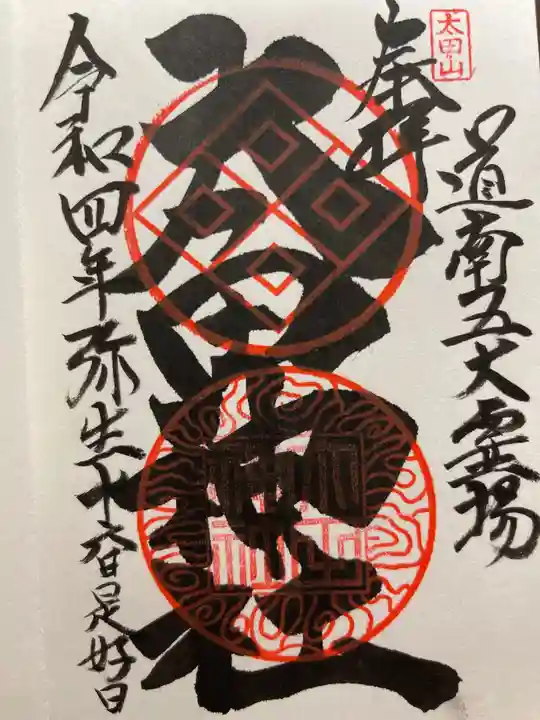 太田山
道南五大霊場
奉拝
太田山神社
令和四年弥生十六日是好日